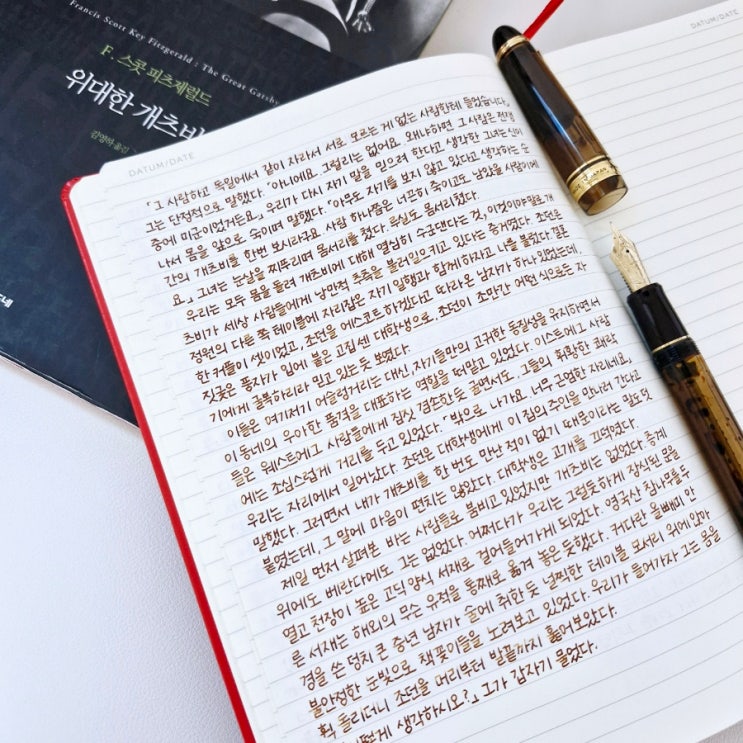 Francis Scott Key Fitzgerald : The Great Gatsby
F. 스콧 피츠제럴드
위대한 개츠비
김영하 옮김
DATUM/DATE
DATUM/DATE
「그 사람하고 독일에서 같이 자라서 서로 모르는 게 없는 사람한테 들었습니다.」
그는 단정적으로 말했다. 「아니에요. 그럴리는 없어요. 왜냐하면 그 사람은 전쟁
중에 미군이었거든요.」 우리가 다시 자기 말을 믿으려 한다고 생각한 그녀는 신이
나서 몸을 앞으로 숙이며 말했다. 「아무도 자기를 보지 않고 있다고 생각하는 순
간의 개츠비를 한번 보시라구요. 사람 하나쯤은 너끈히 죽이고도 남았을 사람이에
요.」 그녀는 눈살을 찌푸리며 몸서리를 쳤다. 루실도 몸서리쳤다.
우리는 모두 몸을 돌려 개츠비에 대해 열심히 수군댄다는 것, 이것이야말로 개
츠비가 세상 사람들에게 낭만적 추측을 불러일으키고 있다는 증거였다. 조던은
정원의 다른 쪽 테이블에 자리잡은 자기 일행과 합께하자고 나를 불렀다. 결혼
한 커플이 셋이었고, 조던을 에스코트 하겠다고 따라온 남자가 하나 있었는데,
짓궂은 풍자가 입에 붙은 고집 센 대학생으로, 조던이 조만간 어떤 식으로든 자
기에게 굴복하리라 믿고 있는 듯 보였다.
이들은 여기저기 어슬렁거리는 대신, 자기들만의 고귀한 동질성을 유지하면서
이 동네의 우아한 품격을 대표하는 역할을 떠맡고 있었다. 이스트에그 사람
들은 웨스트에그 사람들에게 짐짓 겸손한 듯 굴면서도, 그들의 휘황한 쾌락
에는 조심스럽게 거리를 두고 있었다. 「밖으로 나가요. 너무 근엄한 자리네요.」
우리는 자리에서 일어났다. 조던은 대학생에게 이 집의 주인을 만나러 간다고
말했다. 그러면서 내가 개츠비를 한 번도 만난 적이 없기 때문이라는 말도 덧
붙였는데, 그 말에 마음이 편치는 않았다. 대학생은 고개를 끄덕였다.
제일 먼저 살펴본 바는 사람들로 붐비고 있었지만 개츠비는 없었다. 층계
위에도 베란다에도 그는 없었다. 어쩌다가 우리는 그럴듯하게 장식된 문을
열고 천장이 높은 고딕 양식 서재로 걸어들어가게 되었다. 영국산 참나무를 두
른 서재는 해외의 무슨 유적을 통째로 옮겨 놓은 듯했다. 커다란 올빼미 안
경을 쓴 덩치 큰 중년 남자가 술에 취한 듯 널찍한 테이블 모서리 위에 앉아
불안정한 눈빛으로 책꽂이들을 노려보고 있었다. 우리가 들어가자 그는 몸을
휙 돌리더니 조던을 머리부터 발끝까지 훑어보았다.
어떻게 생각하시오?」 그가 갑자기 물었다.